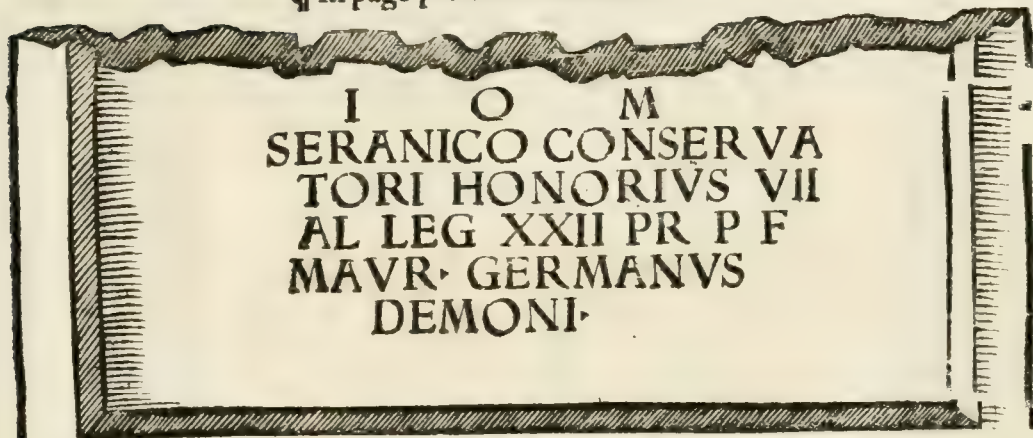 I O M
SERANICO CONSERVA
TORI HONORIVS VII
AL LEG XXII PR P F
MAVR· GERMANVS
DEMONI·